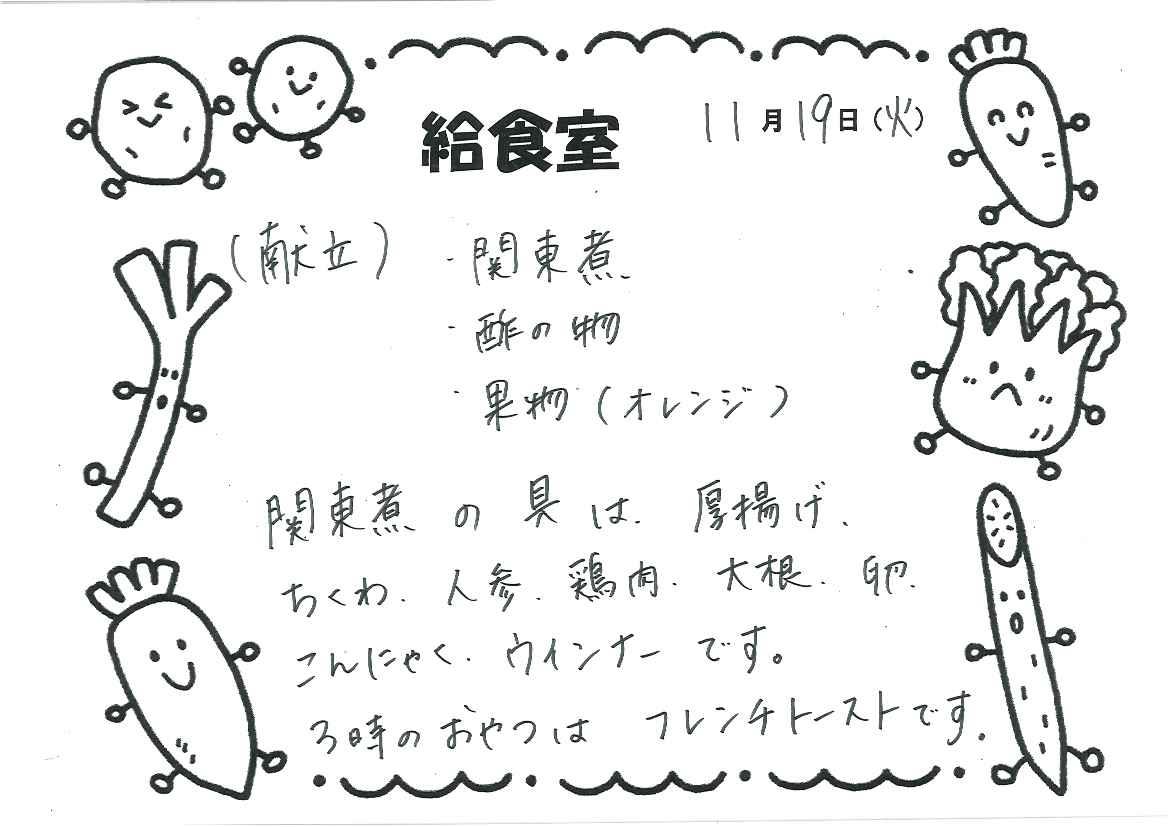 給食室
11月19日(火)
(献立)
・関東煮
・酢の物
・果物(オレンジ)
関東煮の具は、厚揚げ、
ちくわ、人参、鶏肉、大根、卵、
こんにゃく、ウインナーです。
3時のおやつは フレンチトーストです。